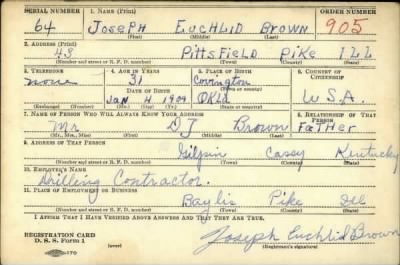 SERIAL NUMBER 1. NAME (Print) ORDER NUMBER
64 JOSEPH EUCHLID BROWN 905
(First) (Middle) (Last)
2. ADDRESS (Print)
43 PITTSFIELD PIKE ILL
(Number and street or R. F. D. number) (Town) (County) (State)
3. TELEPHONE 4. AGE IN YEARS 5. PLACE OF BIRTH 6. COUNTRY OF CITIZENSHIP
none 31 Covington
DATE OF BIRTH
JAN 4 1909 OKLA U.S.A.
(Exchange) (No.) (Mo.) (Day) (Yr.) (State or country)
7. NAME OF PERSON WHO WILL ALWAYS KNOW YOUR ADDRESS 8. RELATIONSHIP OF THAT PERSON
Mr DJ Brown FATHER
(Mr., Mrs., Miss) (First) (Middle) (Last)
9. ADDRESS OF THAT PERSON
Gilpin Casey Kentucky
(Number and street or R. F. D. number) (Town) (County) (State)
10. EMPLOYER'S NAME
Drilling Contractor.
11. PLACE OF EMPLOYMENT OR BUSINESS
Baylis Pike Ill
(Number and street or R. F. D. number) (Town) (County) (State)
I AFFIRM THAT I HAVE VERIFIED ABOVE ANSWERS AND THAT THEY ARE TRUE.
REGISTRATION CARD
D. S. S. Form 1 Joseph Euchlid Brown
(over) (Registrant's signature)